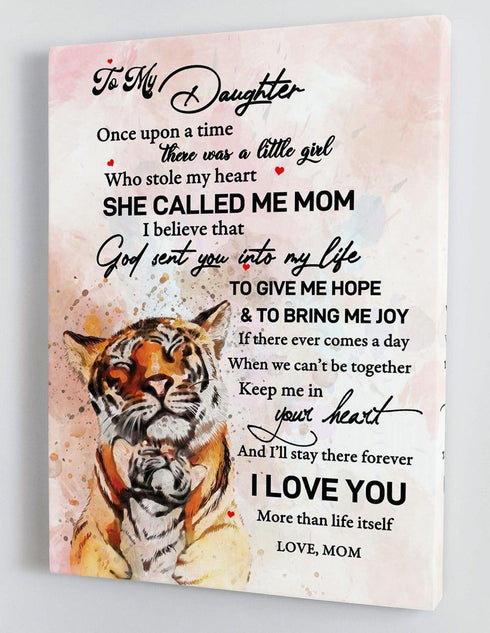 To My Daughter
Once upon a time
there was a little girl
Who stole my heart
SHE CALLED ME MOM
I believe that
God sent you into my life
TO GIVE ME HOPE
& TO BRING ME JOY
If there ever comes a day
When we can't be together
Keep me in
your heart
And I'll stay there forever
I LOVE YOU
More than life itself
LOVE, MOM